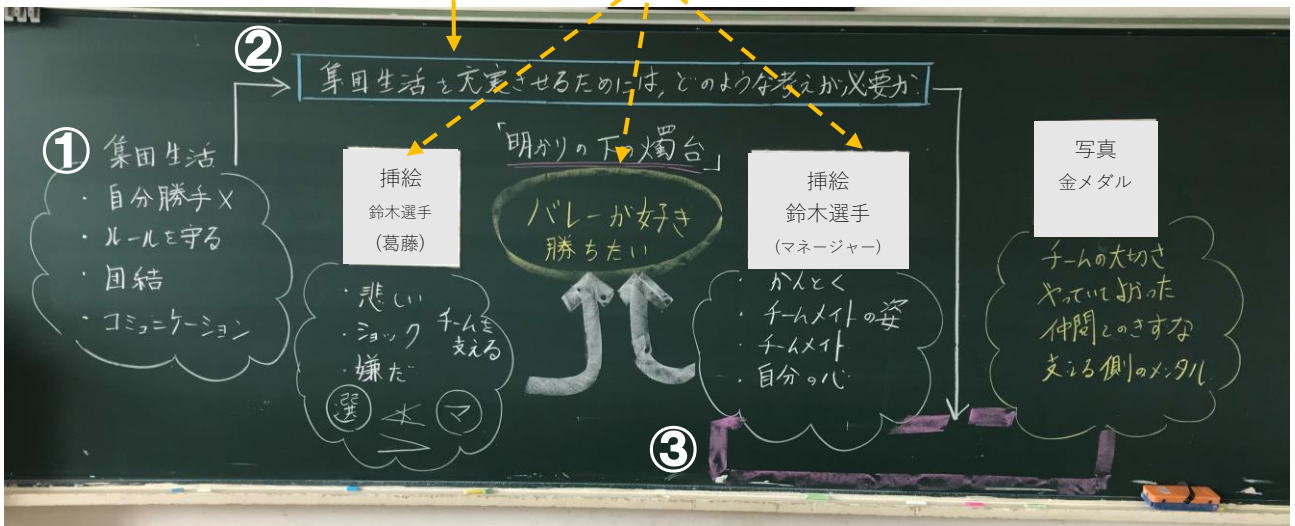 ②
集団生活を充実させるためには,どのような考えが必要か.
①
集団生活
・自分勝手×
・ルールを守る
・団結
・コミュニケーション
挿絵
鈴木選手
(葛藤)
・悲しい
・ショック
・嫌だ
チームを
支える
選
マ
「明かりの下の燭台」
バレーが好き
勝ちたい
挿絵
鈴木選手
(マネージャー)
・かんとく
・チームメイトの姿
・チームメイト
・自分の心
③
写真
金メダル
チームの大切さ
やっていてよかった
仲間とのきずな
支える側のメンタル